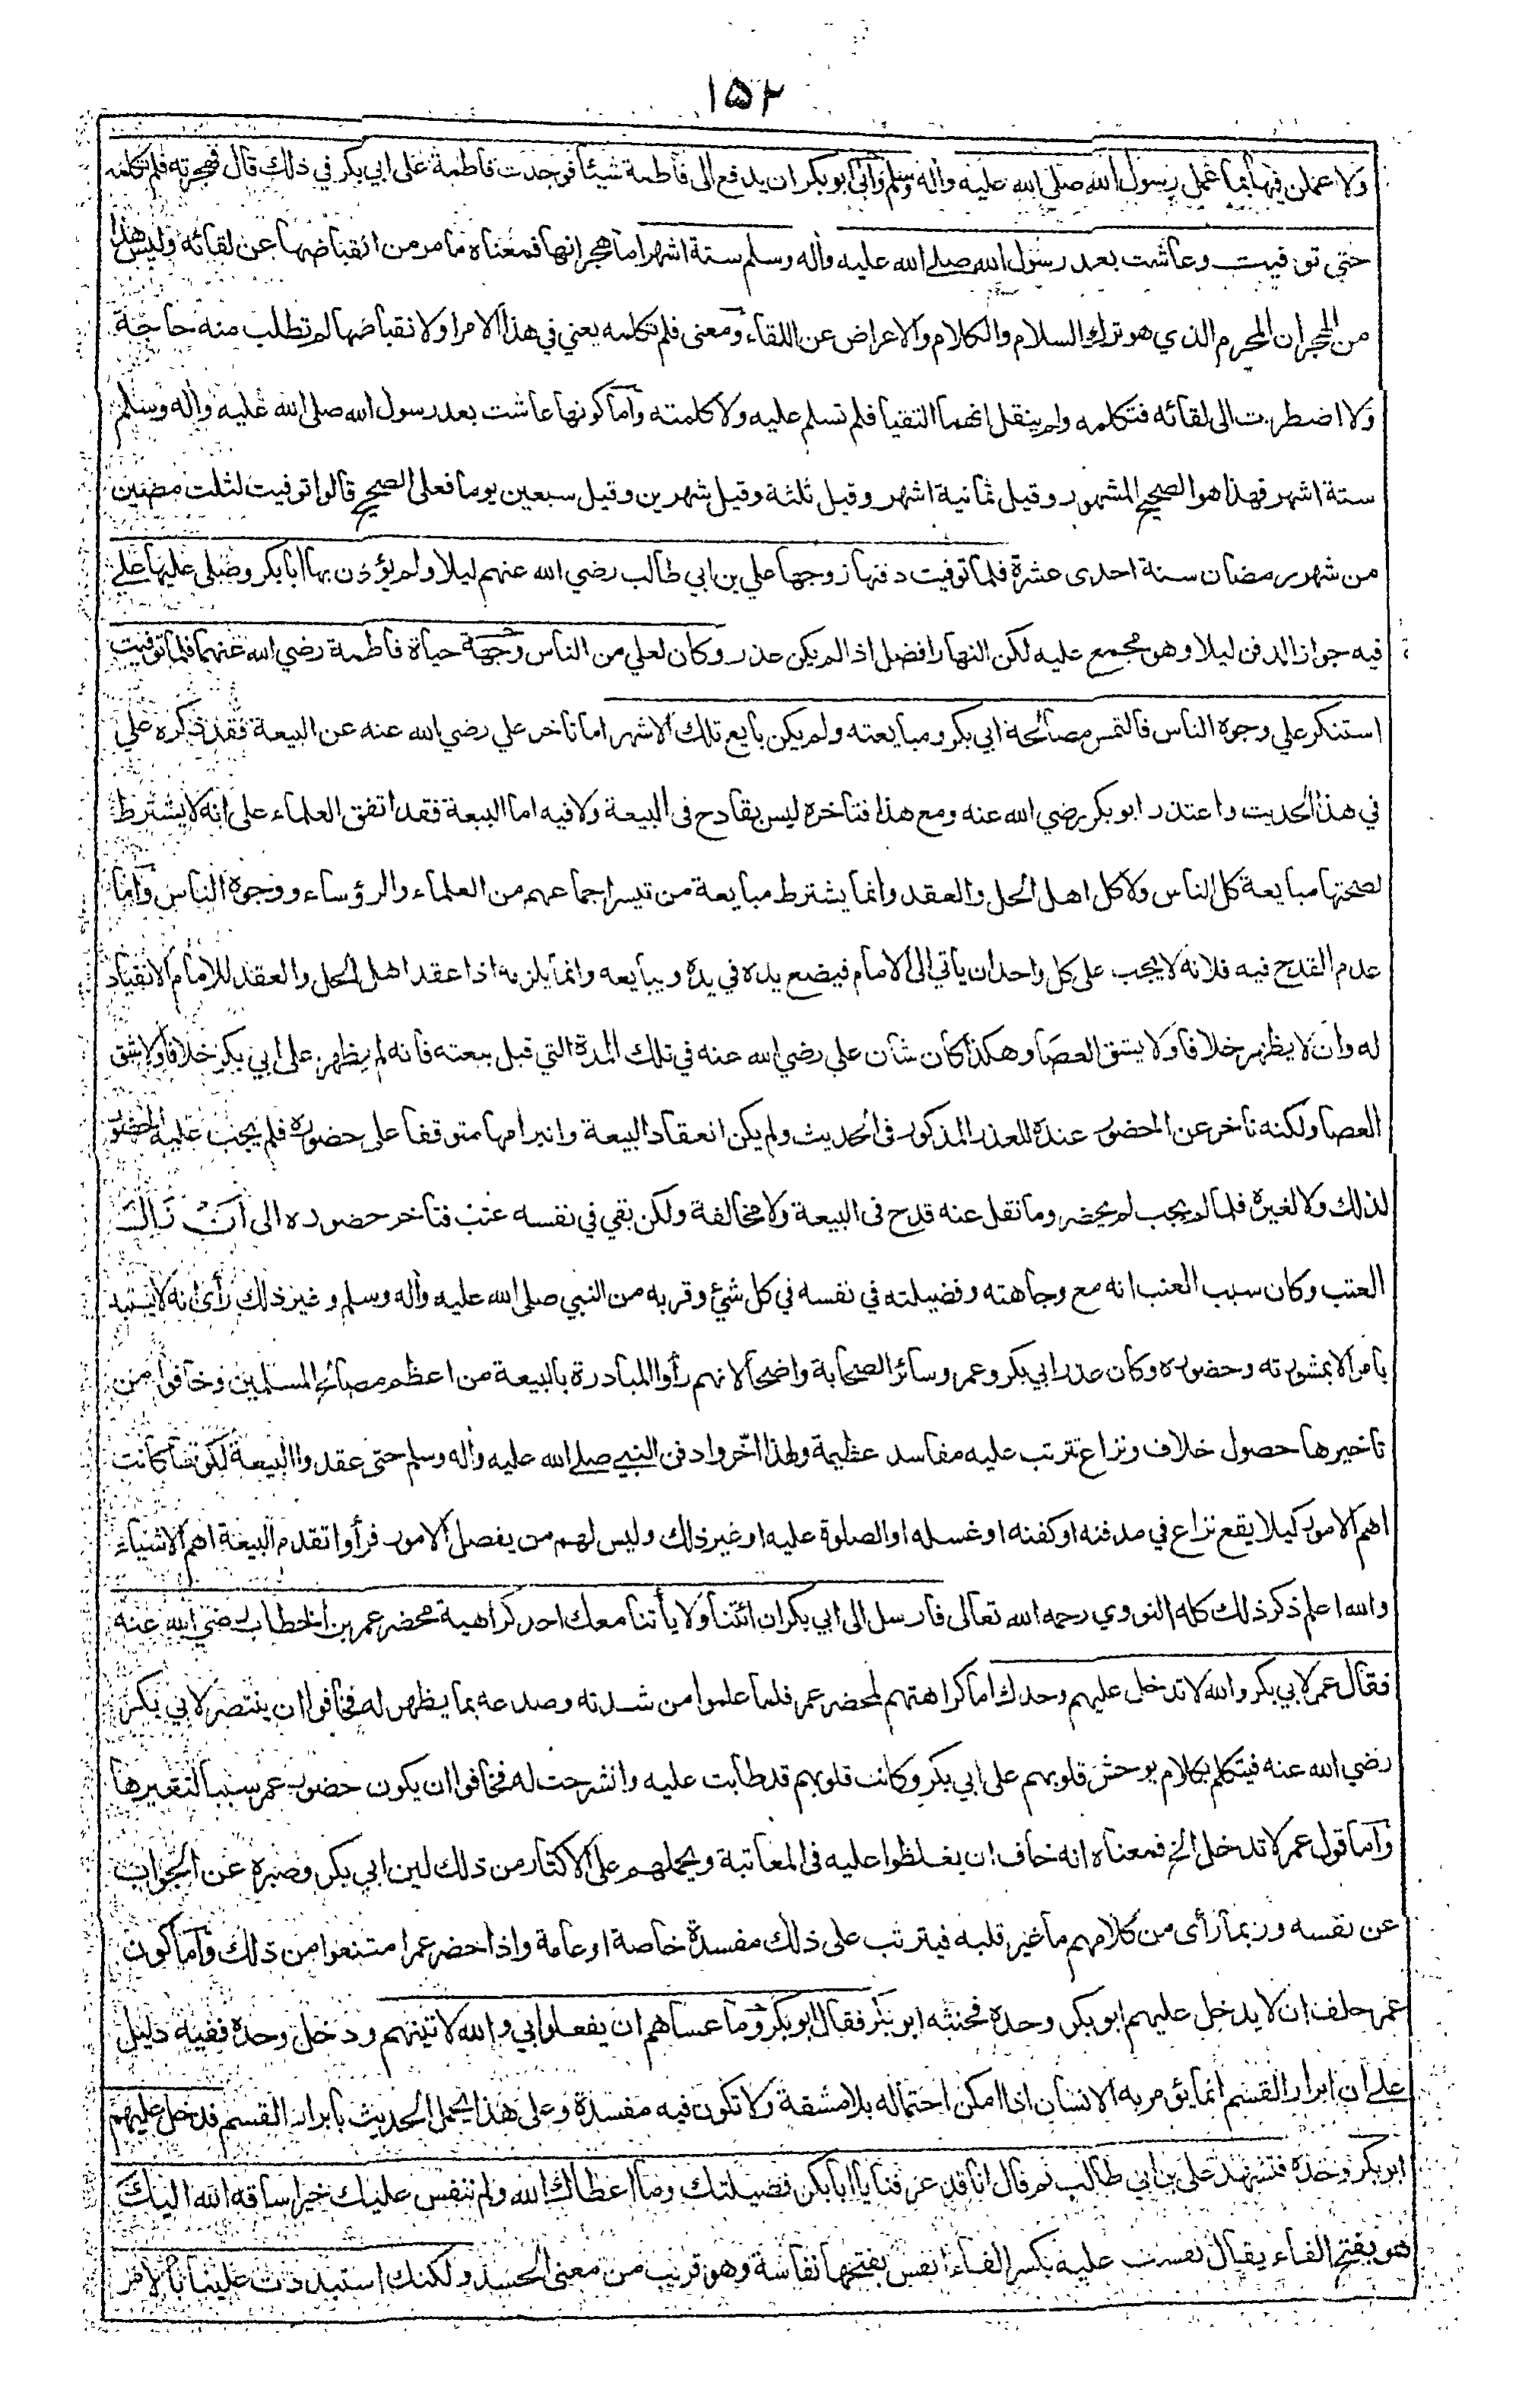 ١٥٢
ولا عملن فيها بما عمل رسول الله صلى الله عليه وأله وسلم وأبى أبو بكر ان يدفع الى فاطمة شيئا فوجدت فاطمة على ابي بكر في ذلك قال فهجرته فلم تكلمه
حتى توفيت وعاشت بعد رسول الله صلے الله عليه وأله وسلم ستة اشهر اما هجرانها فمعناه ما مر من انقباضها عن لقائه وليس هذا
من الهجران المحرم الذي هو ترك السلام والكلام والاعراض عن اللقاء ومعنى فلم تكلمه يعني في هذا الامر اولانقباضها لم تطلب منه حاجة
ولا اضطرت الى لقائه فتكلمه ولم ينقل انهما التقيا فلم تسلم عليه ولا كلمته واما كونها عاشت بعد رسول الله صلى الله عليه وأله وسلم
ستة اشهر فهذا هو الصحيح المشهور وقيل ثمانية اشهر وقيل ثلثة وقيل شهرين وقيل سبعين يوما فعلى الصحيح قالوا توفيت لثلث مضين
من شهر رمضان سنة احدى عشرة فلما توفيت دفنها زوجها علي بن ابي طالب رضي الله عنهم ليلا ولم يؤذن بها ابا بكر وصلى عليها علے
فيه جواز الدفن ليلا وهو مجمع عليه لكن النهار افضل اذا لم يكن عذر وكان لعلي من الناس وجهة حياة فاطمة رضي الله عنهما فلما توفيت
استنكر علي وجوه الناس فالتمس مصالحة ابي بكر ومبايعته ولم يكن بايع تلك الاشهر اما تأخر علي رضي الله عنه عن البيعة فقد ذكره علي
في هذا الحديث واعتذر ابو بكر رضي الله عنه ومع هذا فتأخره ليس بقادح فى البيعة ولا فيه اما البيعة فقد اتفق العلماء على انه لا يشترط
لصحتها مبايعة كل الناس ولا كل اهل الحل والعقد وانما يشترط مبايعة من تيسر اجماعهم من العلماء والرؤساء ووجوه الناس وأما
عدم القدح فيه فلانه لا يجب على كل واحد ان يأتي الى الامام فيضع يده في يده ويبايعه وانما يلزمه اذا عقد اهل الحل والعقد للامام الانقياد
له وان لا يظهر خلافا ولا يشق العصا وهكذا كان شأن علي رضي الله عنه في تلك المدة التي قبل بيعته فانه لم يظهر على ابي بكر خلافا ولا شق
العصا ولكنه تأخر عن الحضور عنده للعذر المذكور فى الحديث ولم يكن انعقاد البيعة وانبرامها متوقفا على حضوره فلم يجب عليه الحضور
لذلك ولا لغيره فلما لم يجب لم يحضر وما نقل عنه قدح فى البيعة ولا مخالفة ولكن بقي في نفسه عتب فتأخر حضوره الى ان زال
العتب وكان سبب العتب انه مع وجاهته وفضيلته في نفسه في كل شيء وقربه من النبي صلى الله عليه وأله وسلم وغير ذلك رأى انه لا يستبد
بامر الا بمشورته وحضوره وكان عذر ابي بكر وعمر وسائر الصحابة واضحا لانهم رأوا المبادرة بالبيعة من اعظم مصالح المسلمين وخافوا من
تاخيرها حصول خلاف ونزاع تترتب عليه مفاسد عظيمة ولهذا اخّروا دفن النبي صلے الله عليه وأله وسلم حتى عقدوا البيعة لكونها كانت
اهم الامور كيلا يقع نزاع في مدفنه او كفنه او غسله او الصلوة عليه او غير ذلك وليس لهم من يفصل الامور فرأوا تقدم البيعة اهم الاشياء
والله اعلم ذكر ذلك كله النووي رحمه الله تعالى فارسل الى ابي بكر ان ائتنا ولا يأتنا معك احد كراهية محضر عمر بن الخطاب رضي الله عنه
فقال عمر لابي بكر والله لا تدخل عليهم وحدك اما كراهتهم لمحضر عمر فلما علموا من شدته وصدعه بما يظهر له فخافوا ان ينتصر لابي بكر
رضي الله عنه فيتكلم بكلام يوحش قلوبهم على ابي بكر وكانت قلوبهم قد طابت عليه وانشرحت له فخافوا ان يكون حضور عمر سببا لتغيرها
واما قول عمر لا تدخل الخ فمعناه انه خاف ان يغلظوا عليه فى المعاتبة ويحملهم على الاكثار من ذلك لين ابي بكر وصبره عن الجواب
عن نفسه وربما رأى من كلامهم ما غير قلبه فيترتب على ذلك مفسدة خاصة او عامة واذا حضر عمر امتنعوا من ذلك واما كون
عمر حلف ان لا يدخل عليهم ابو بكر وحده فحنثه ابو بكر فقال ابو بكر وما عساهم ان يفعلوا بي والله لاتينهم ودخل وحده ففيه دليل
على ان ابرار القسم انما يؤمر به الانسان اذا امكن احتماله بلا مشقة ولا تكون فيه مفسدة وعلى هذا يحمل الحديث بابرار القسم فدخل عليهم
ابو بكر وحده فتشهد علي بن ابي طالب ثم قال انا قد عرفنا يا ابا بكر فضيلتك وما اعطاك الله ولم ننفس عليك خيرا ساقه الله اليك
هو بفتح الفاء يقال نفست عليه بكسر الفاء انفس بفتحها نفاسة وهو قريب من معنى الحسد ولكنك استبددت علينا بالامر